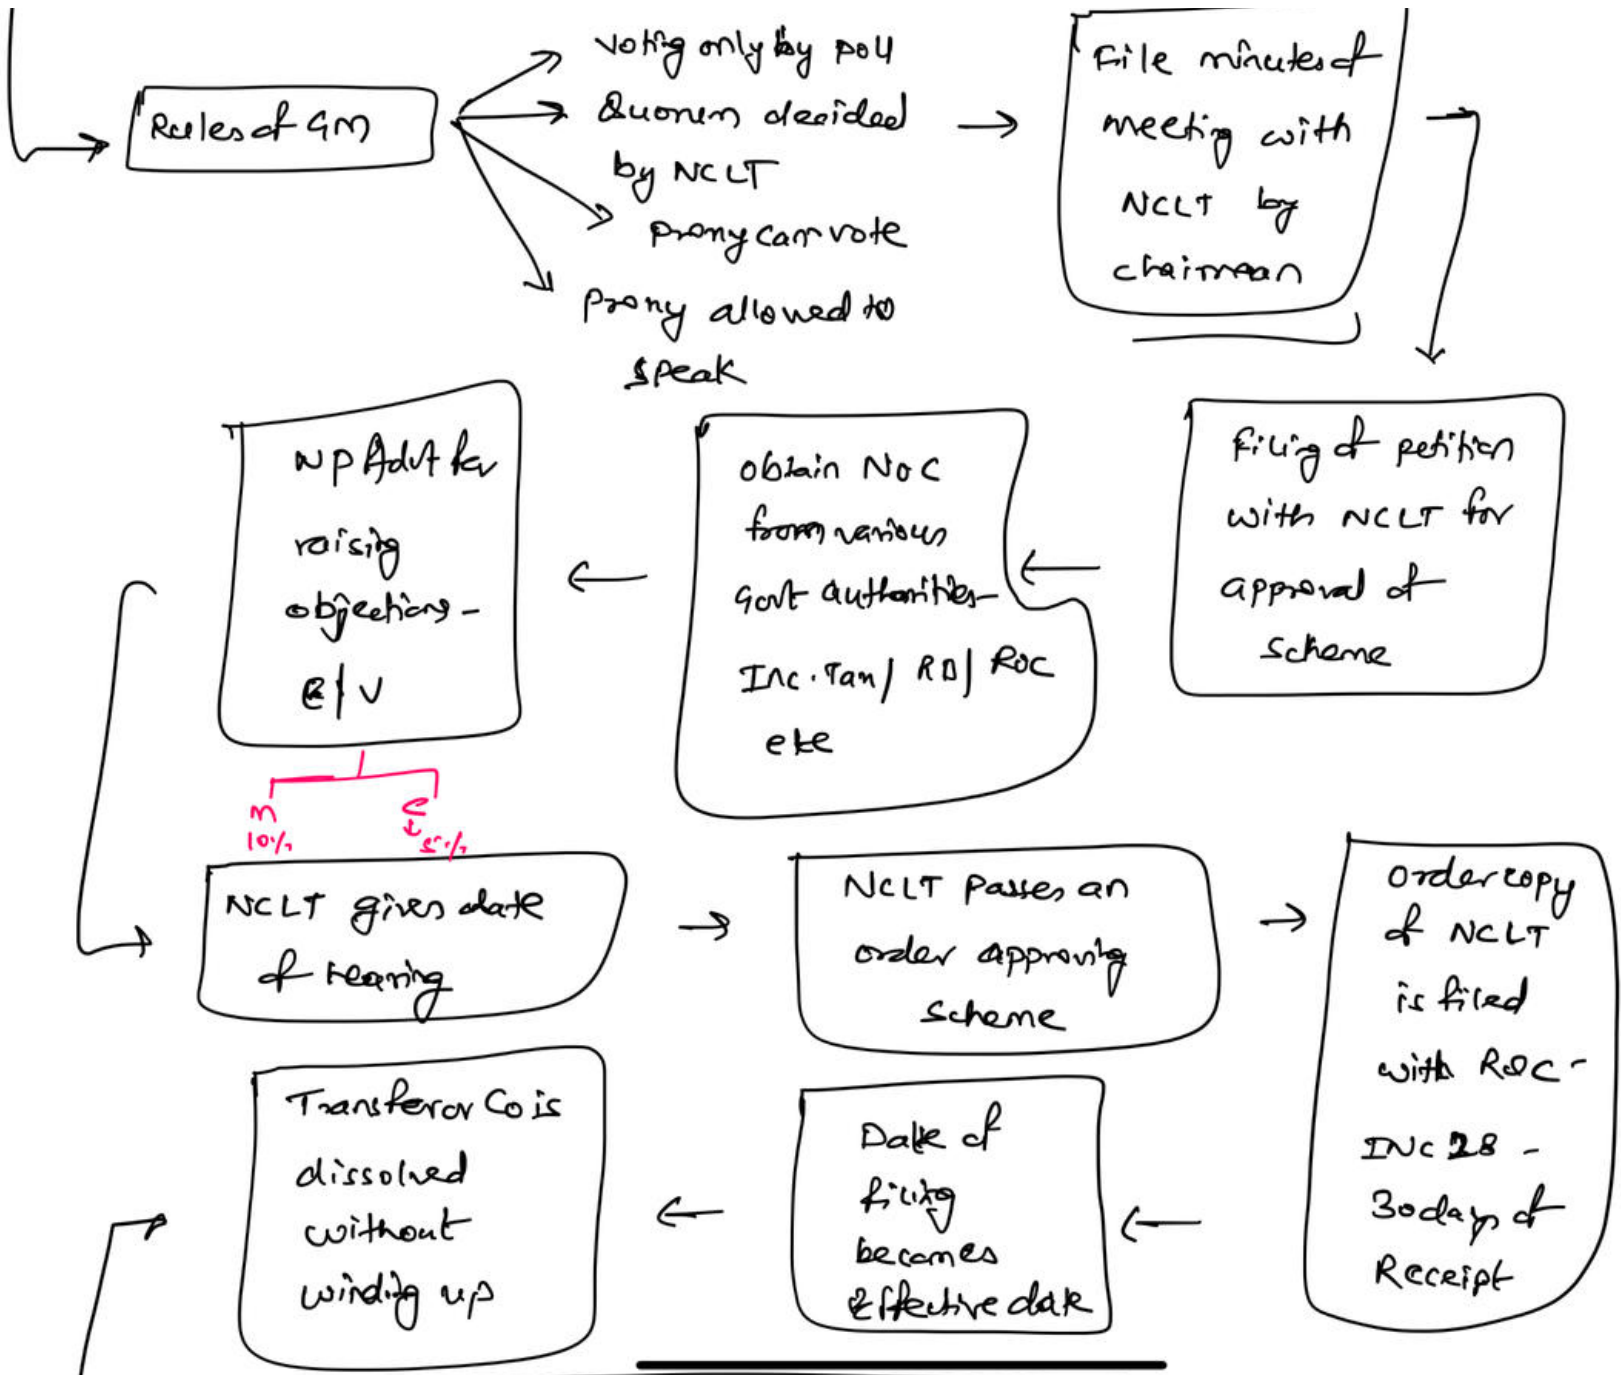 Rules of GM
Voting only by poll
Quorum decided
by NCLT
Proxy can vote
Proxy allowed to
speak
File minutes of
meeting with
NCLT by
chairman
Filing of petition
with NCLT for
approval of
scheme
obtain NOC
from various
Govt authorities-
Inc. Tax/ RD/ ROC
etc
NP Advt for
raising
objections -
E/V
M
10%
C
5%
NCLT gives date
of Hearing
NCLT Passes an
order approving
scheme
Order copy
of NCLT
is filed
with ROC -
INC 28 -
30 days of
Receipt
Date of
filing
becomes
Effective date
Transferor Co is
dissolved
without
winding up